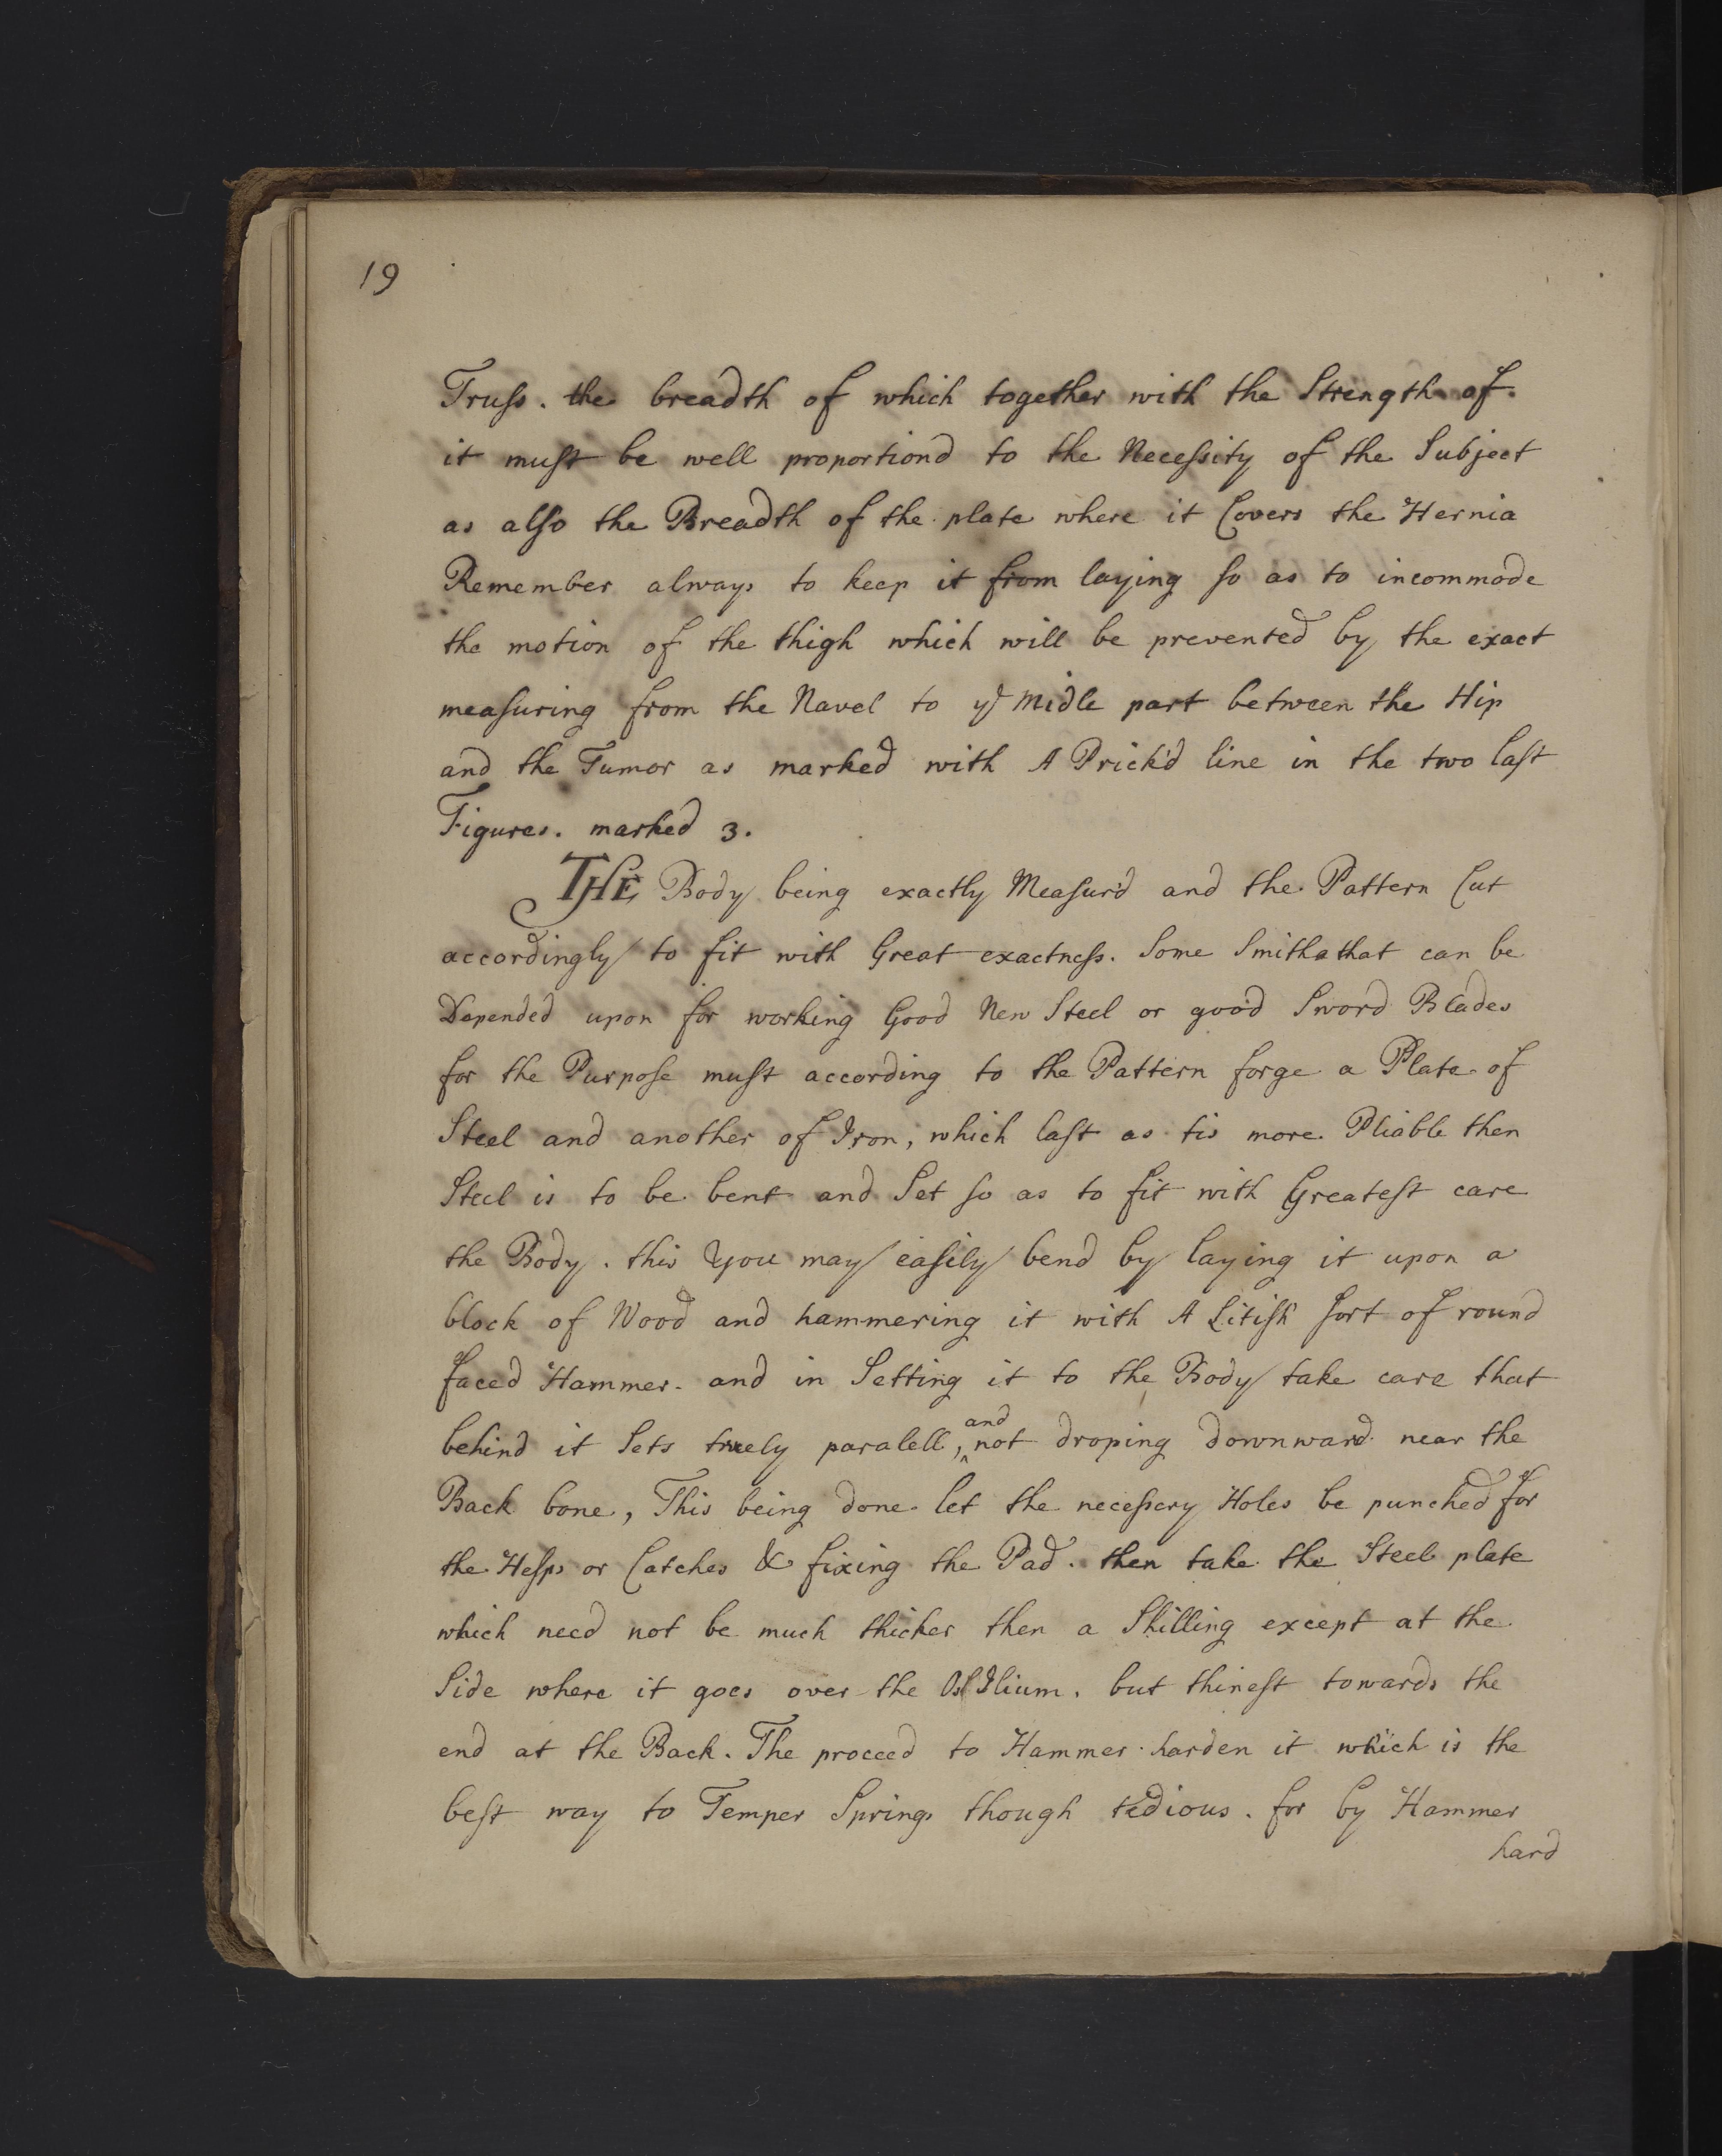 19
Truſs. the breadth of which together with the Strength of
it muſt be well proportiond to the Neceſsity of the Subject
as alſo the Breadth of the plate where it Covers the Hernia
Remember always to keep it from laying ſo as to incommode
the motion of the thigh which will be prevented by the exact
meaſuring from the Navel to yͤ midle part between the Hip
and the Tumor as marked with A Prick'd line in the two laſt
Figures. marked 3.
THE Body being exactly Meaſur'd and the Pattern Cut
accordingly to fit with Great exactneſs. Some Smiths that can be
Depended upon for working Good New Steel or good Sword Blades
for the Purpoſe muſt according to the Pattern forge a Plate of
Steel and another of Iron, which laſt as tis more Pliable then
Steel is to be bent and Set ſo as to fit with Greateſt care
the Body. this You may eaſily bend by laying it upon a
block of Wood and hammering it with A Litiſh ſort of round
faced Hammer. and in Setting it to the Body take care that
behind it Sets truely paralell, and not droping downward near the
Back bone, This being done let the neceſsery Holes be punched for
the Heſps or Catches & fixing the Pad. then take the Steel plate
which need not be much thicker then a Shilling except at the
Side where it goes over the Os Ilium. but thineſt towards the
end at the Back. The proceed to Hammer harden it which is the
beſt way to Temper Springs though tedious. for by Hammer
hard